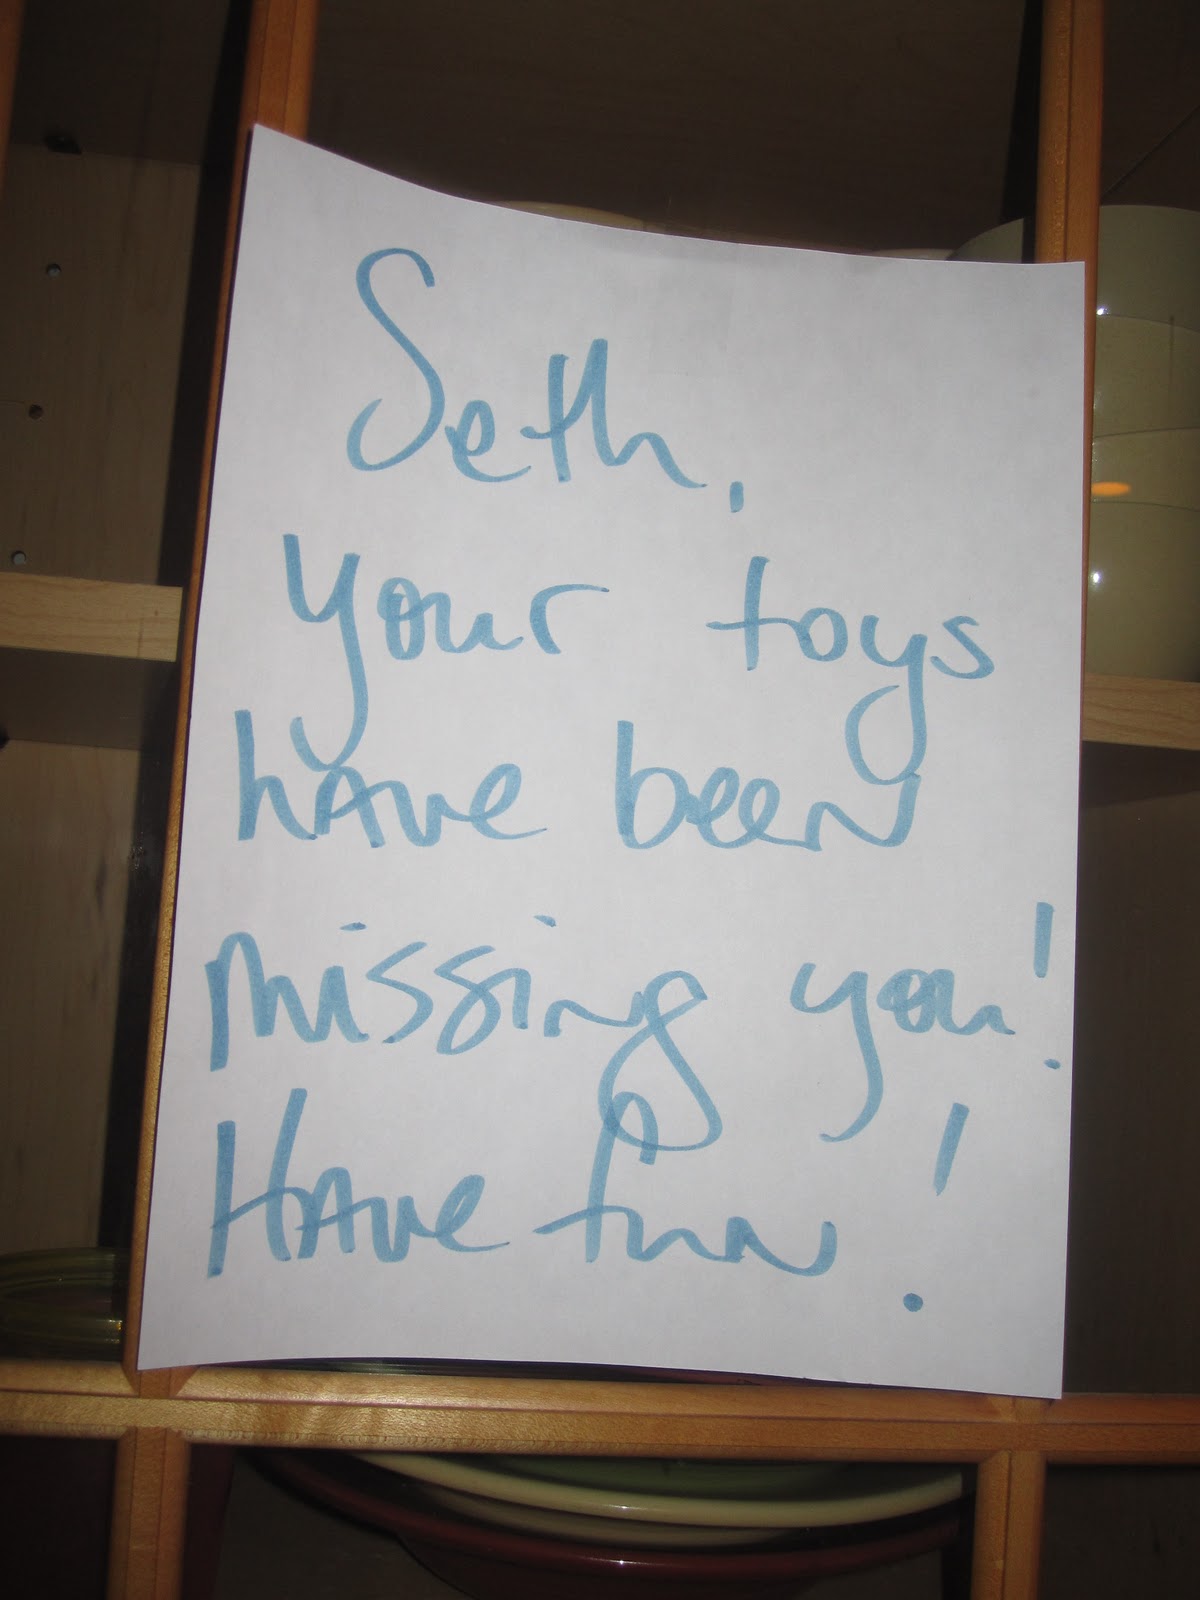 Seth,
your toys
have been
missing you!
Have fun!